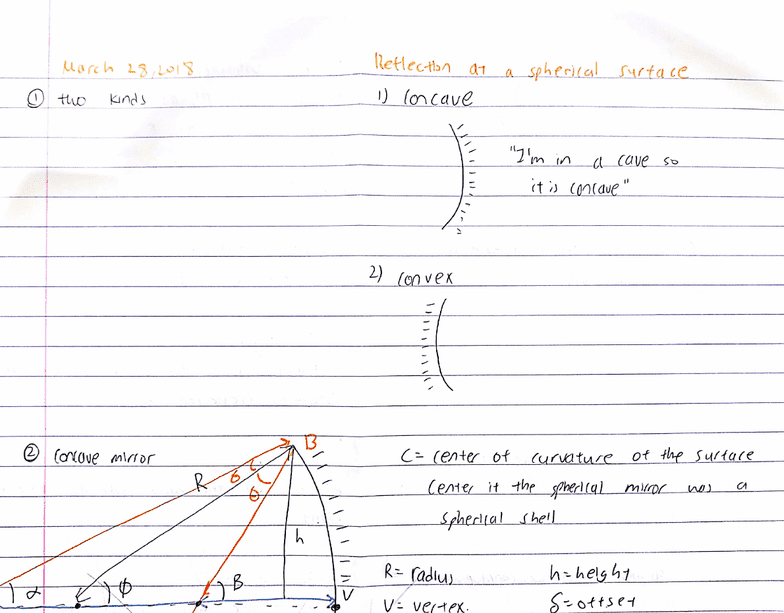 March 28, 2018
Reflection at a spherical surface
① two kinds
1) concave
"I'm in a cave so
it is concave"
2) convex
② concave mirror
B
R
θ
θ
h
α
ϕ
β
V
C = center of curvature of the surface
center if the spherical mirror was a
spherical shell
R = radius
h = height
V = vertex.
δ = offset